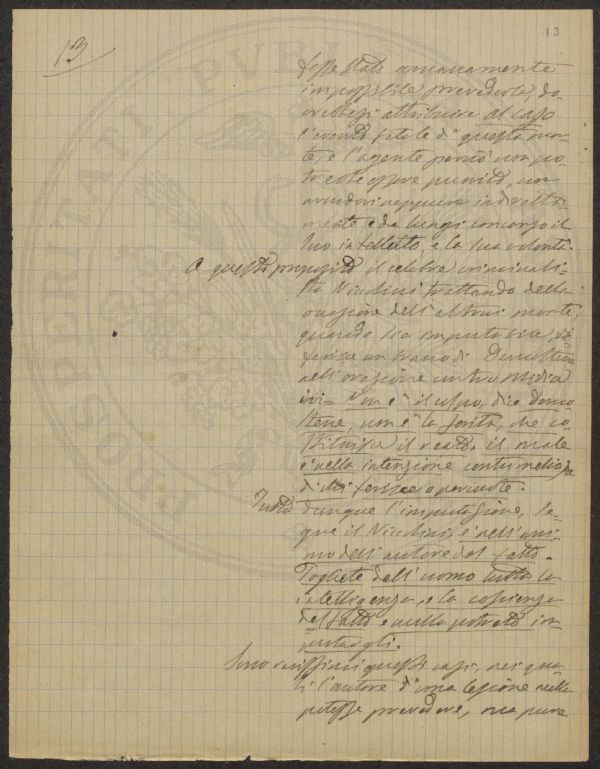 13
13
fosse stato umanamente
impossibile prevederlo, do-
vrebbesi attribuire al caso
l'evento fatale di questa mor-
te, e l'agente perciò non po-
trebbe essere punito, non
avendovi neppure indiretta-
mente e da lungi concorso il
suo intelletto, e la sua volontà.
A questo proposito il celebre criminali-
sta Nicolini trattando della
cagione dell'altrui morte,
quando sia imputabile, ri-
ferisce un brano di Demostene
nell'orazione contro Midia
ivi = Non è il colpo, dice Demo-
stene, non è la ferita, che co-
stituisce il reato. il male
è nella intenzione contumeliosa
di chi ferisce o percuote.
Tutta dunque l'imputazione, se-
gue il Nicolini, è nell'ani-
mo dell'autore del fatto.
Togliete dall'uomo tutta la
intelligenza, e la coscienza
del fatto e nulla potrete im-
putargli.
Sono rarissimi questi casi, nei qua-
li l'autore d'una lesione nulla
potesse prevedere, ma pure